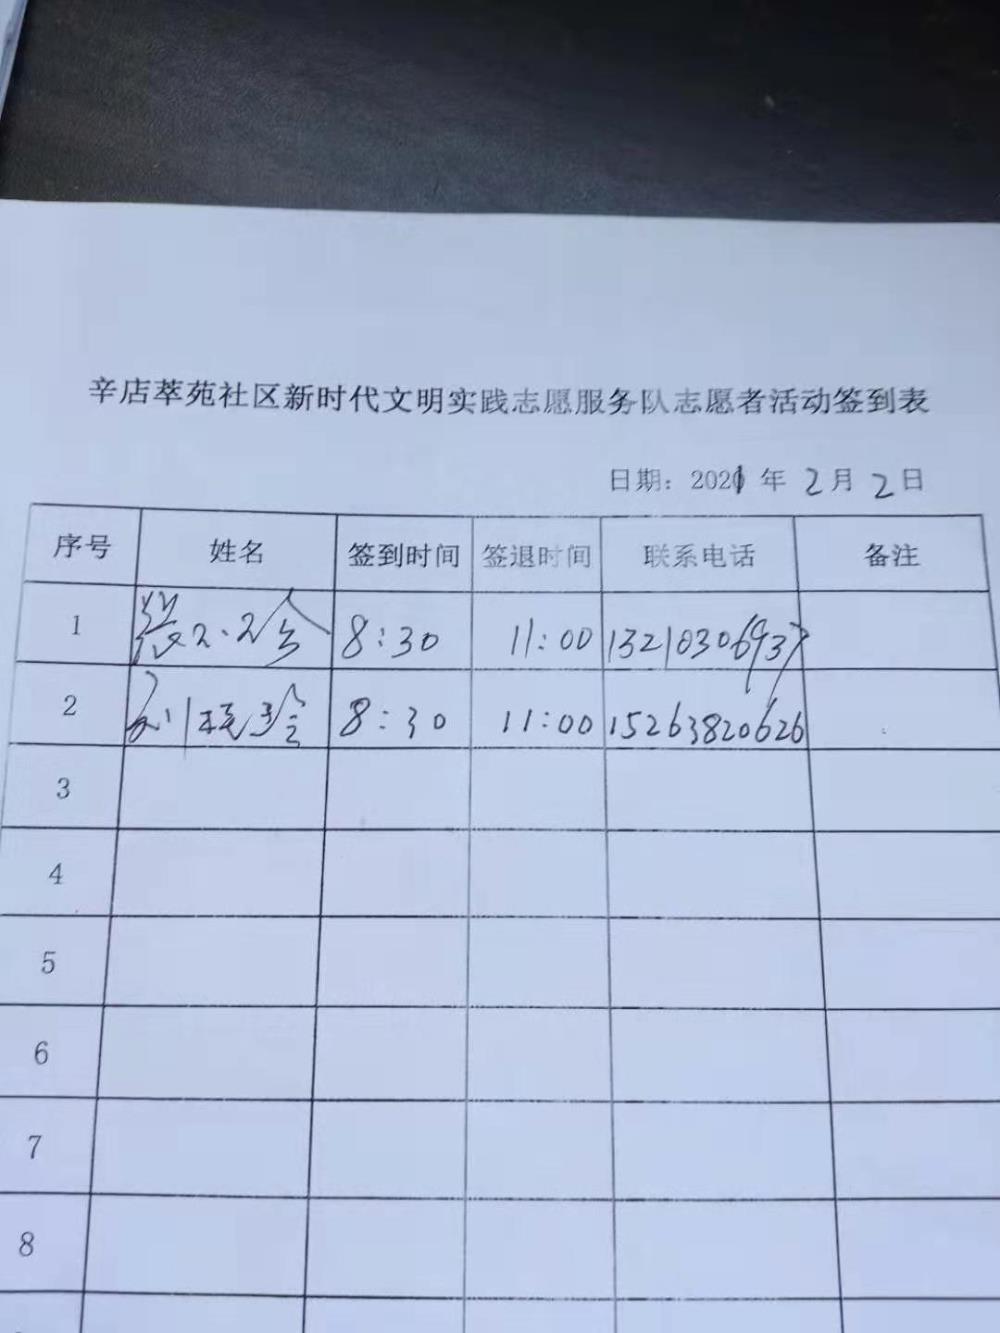 辛店萃苑社区新时代文明实践志愿服务队志愿者活动签到表
日期：2021年 2月 2日
序号 姓名 签到时间 签退时间 联系电话 备注
1 8:30 11:00 13210306937
2 8:30 11:00 15263820626
3
4
5
6
7
8